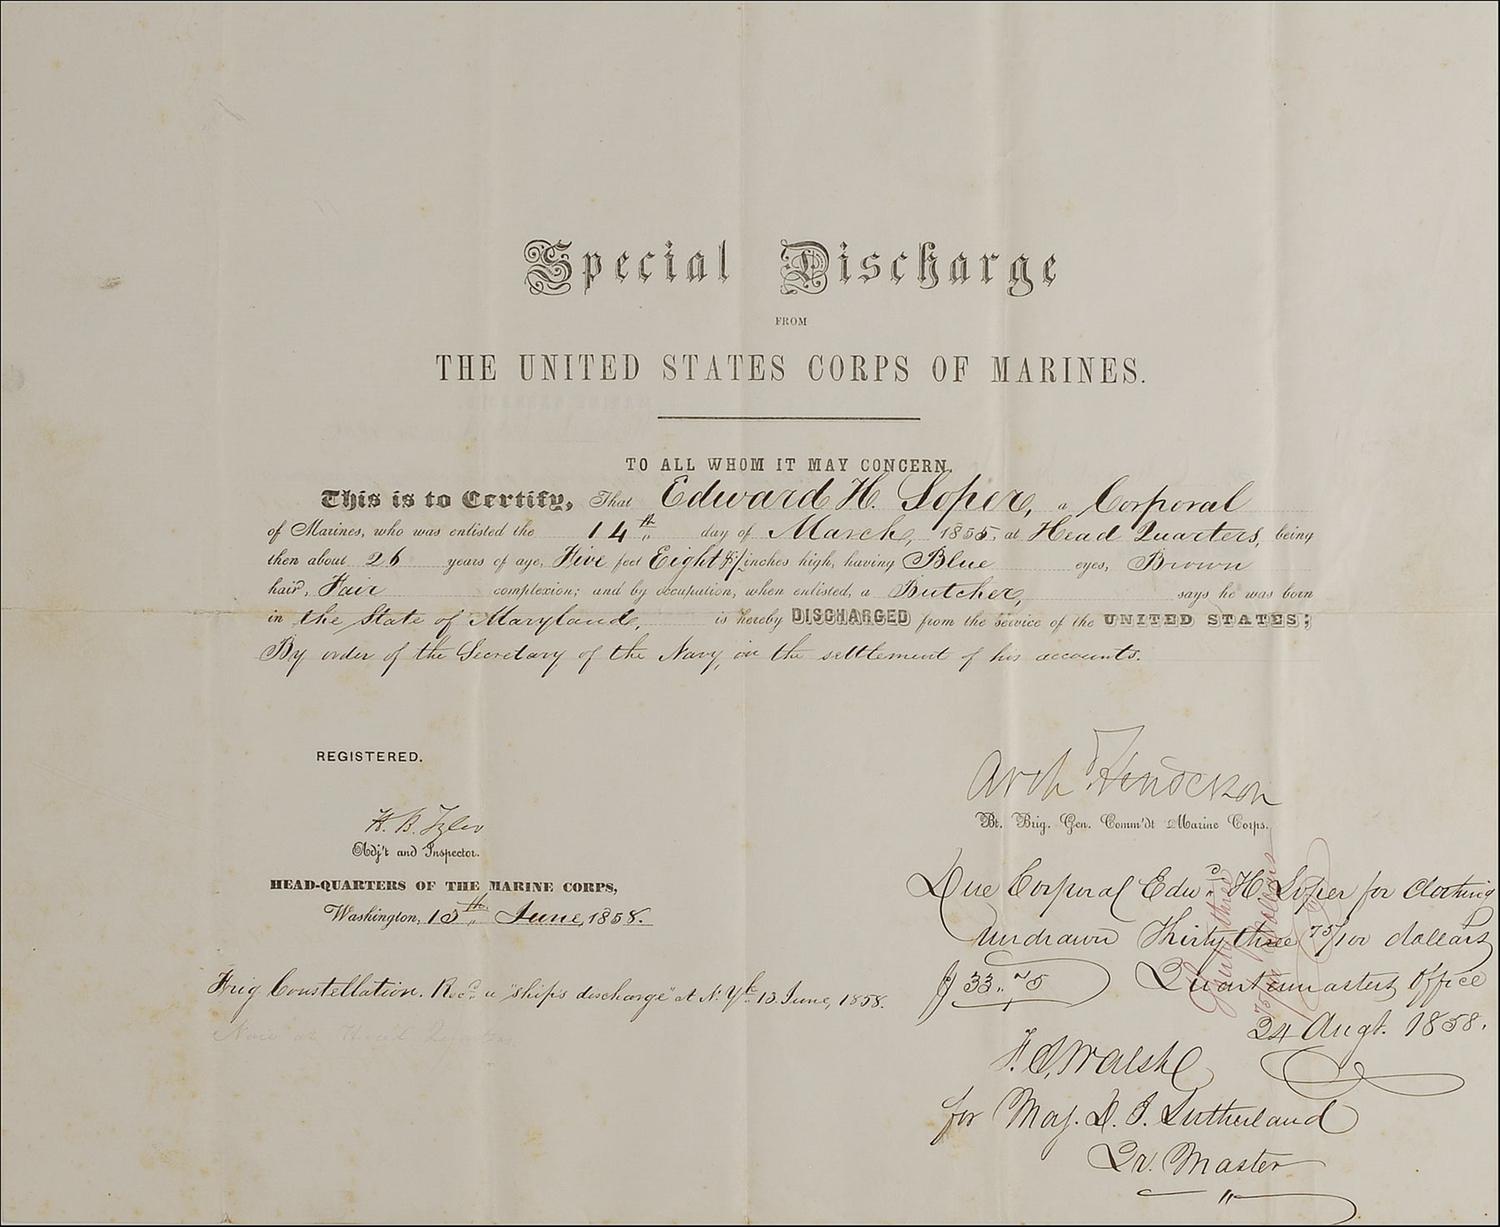 Special Discharge
FROM
THE UNITED STATES CORPS OF MARINES.
TO ALL WHOM IT MAY CONCERN.
This is to Certify, That Edward H. Soper, a Corporal
of Marines, who was enlisted the 14th day of March, 1855 at Head Quarters, being
then about 26 years of age, Five feet Eight inches high, having Blue eyes, Brown
hair, Fair complexion; and by occupation, when enlisted, a Butcher, says he was born
in the State of Maryland, is hereby DISCHARGED from the service of the UNITED STATES;
By order of the Secretary of the Navy, on the settlement of his accounts.
REGISTERED.
Arch Henderson
Bt. Brig. Gen. Comm'dt Marine Corps.
H. B. Tyler
Adj't and Inspector.
HEAD-QUARTERS OF THE MARINE CORPS,
Washington, 15th June, 1858.
Frig. Constellation. Recd. a "ship's discharge" at N. Yk. 13 June, 1858.
Now at Head Quarters.
Due Corporal Edwd. H. Soper for Clothing
undrawn Thirty three 75/100 dollars
$ 33..75 Quartermasters Office
24 Augt. 1858.
Walsh
for Maj. D. J. Sutherland
Qr. Master
Thirty three
75/100 Dollars